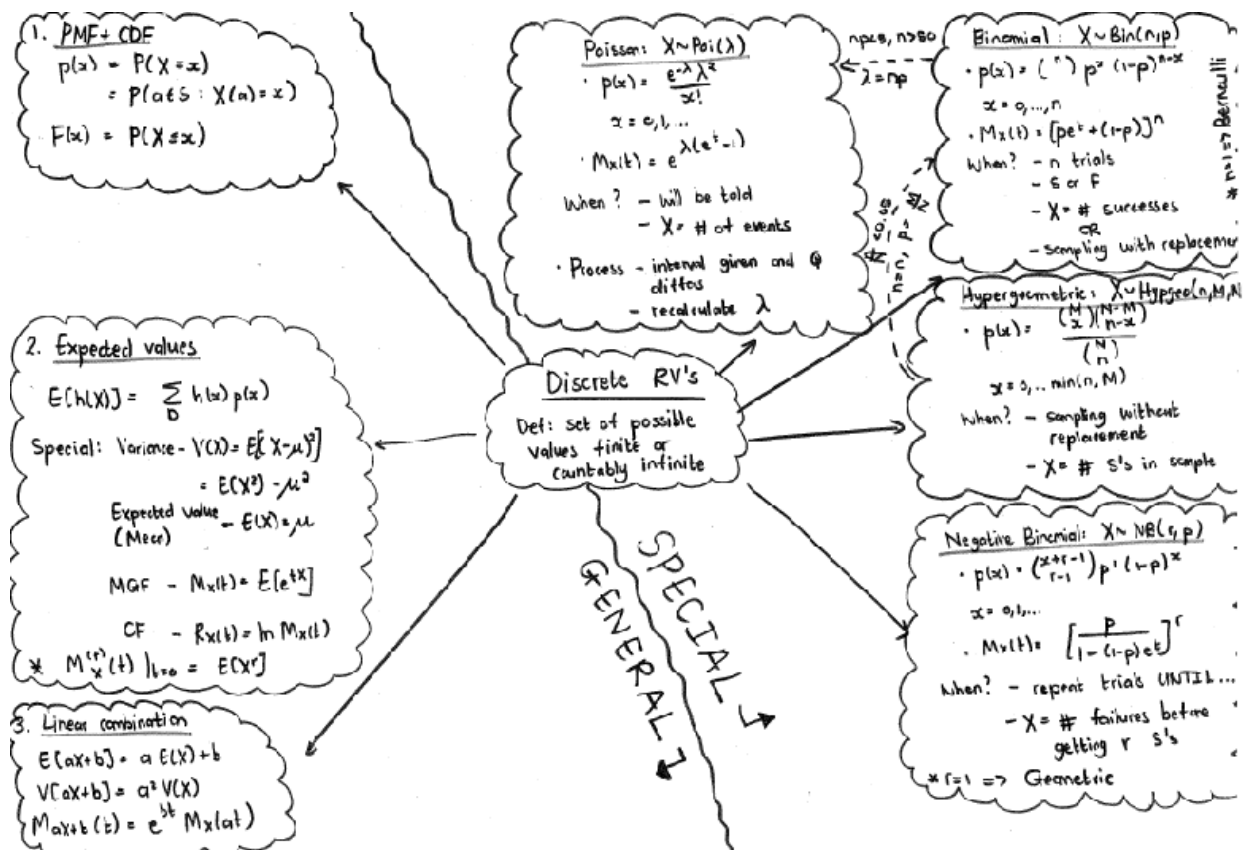 1. PMF + CDF
p(x) = P(X = x)
= P(a∈S : X(a) = x)
F(x) = P(X ≤ x)
2. Expected values
E[h(X)] = ∑_D h(x) p(x)
Special: Variance - V(X) = E[(X-μ)²]
= E(X²) - μ²
Expected value - E(X) = μ
(Mean)
MGF - Mx(t) = E[e^{tX}]
CF - Rx(t) = ln Mx(t)
* M_X^{(r)}(t) |_{t=0} = E[X^r]
3. Linear combination
E[aX+b] = a E(X) + b
V[aX+b] = a² V(X)
M_{aX+b}(t) = e^{bt} Mx(at)
Discrete RV's
Def: set of possible
values finite or
countably infinite
SPECIAL
GENERAL
Poisson: X ~ Poi(λ)
• p(x) = e^{-λ} λ^x / x!
x = 0, 1, ...
• Mx(t) = e^{λ(e^t - 1)}
When? - will be told
- X = # of events
• Process - interval given and Q
differs
- recalculate λ
np<5, n>50
λ = np
Binomial: X ~ Bin(n,p)
• p(x) = (n) p^x (1-p)^{n-x}
x = 0, ..., n
• Mx(t) = [pe^t + (1-p)]^n
When? - n trials
- S or F
- X = # successes
OR
- sampling with replaceme
* n=1 => Bernoulli
n/N <0.05
n=n, p= M/N
Hypergeometric: X ~ Hypgeo(n, M, N
• p(x) = (M x)(N-M n-x) / (N n)
x = 0, .. min(n, M)
When? - sampling without
replacement
- X = # S's in sample
Negative Binomial: X ~ NB(r, p)
• p(x) = (x+r-1 r-1) p^r (1-p)^x
x = 0, 1, ...
• Mx(t) = [p / 1-(1-p)e^t]^r
When? - repeat trials UNTIL...
- X = # failures before
getting r S's
* r=1 => Geometric